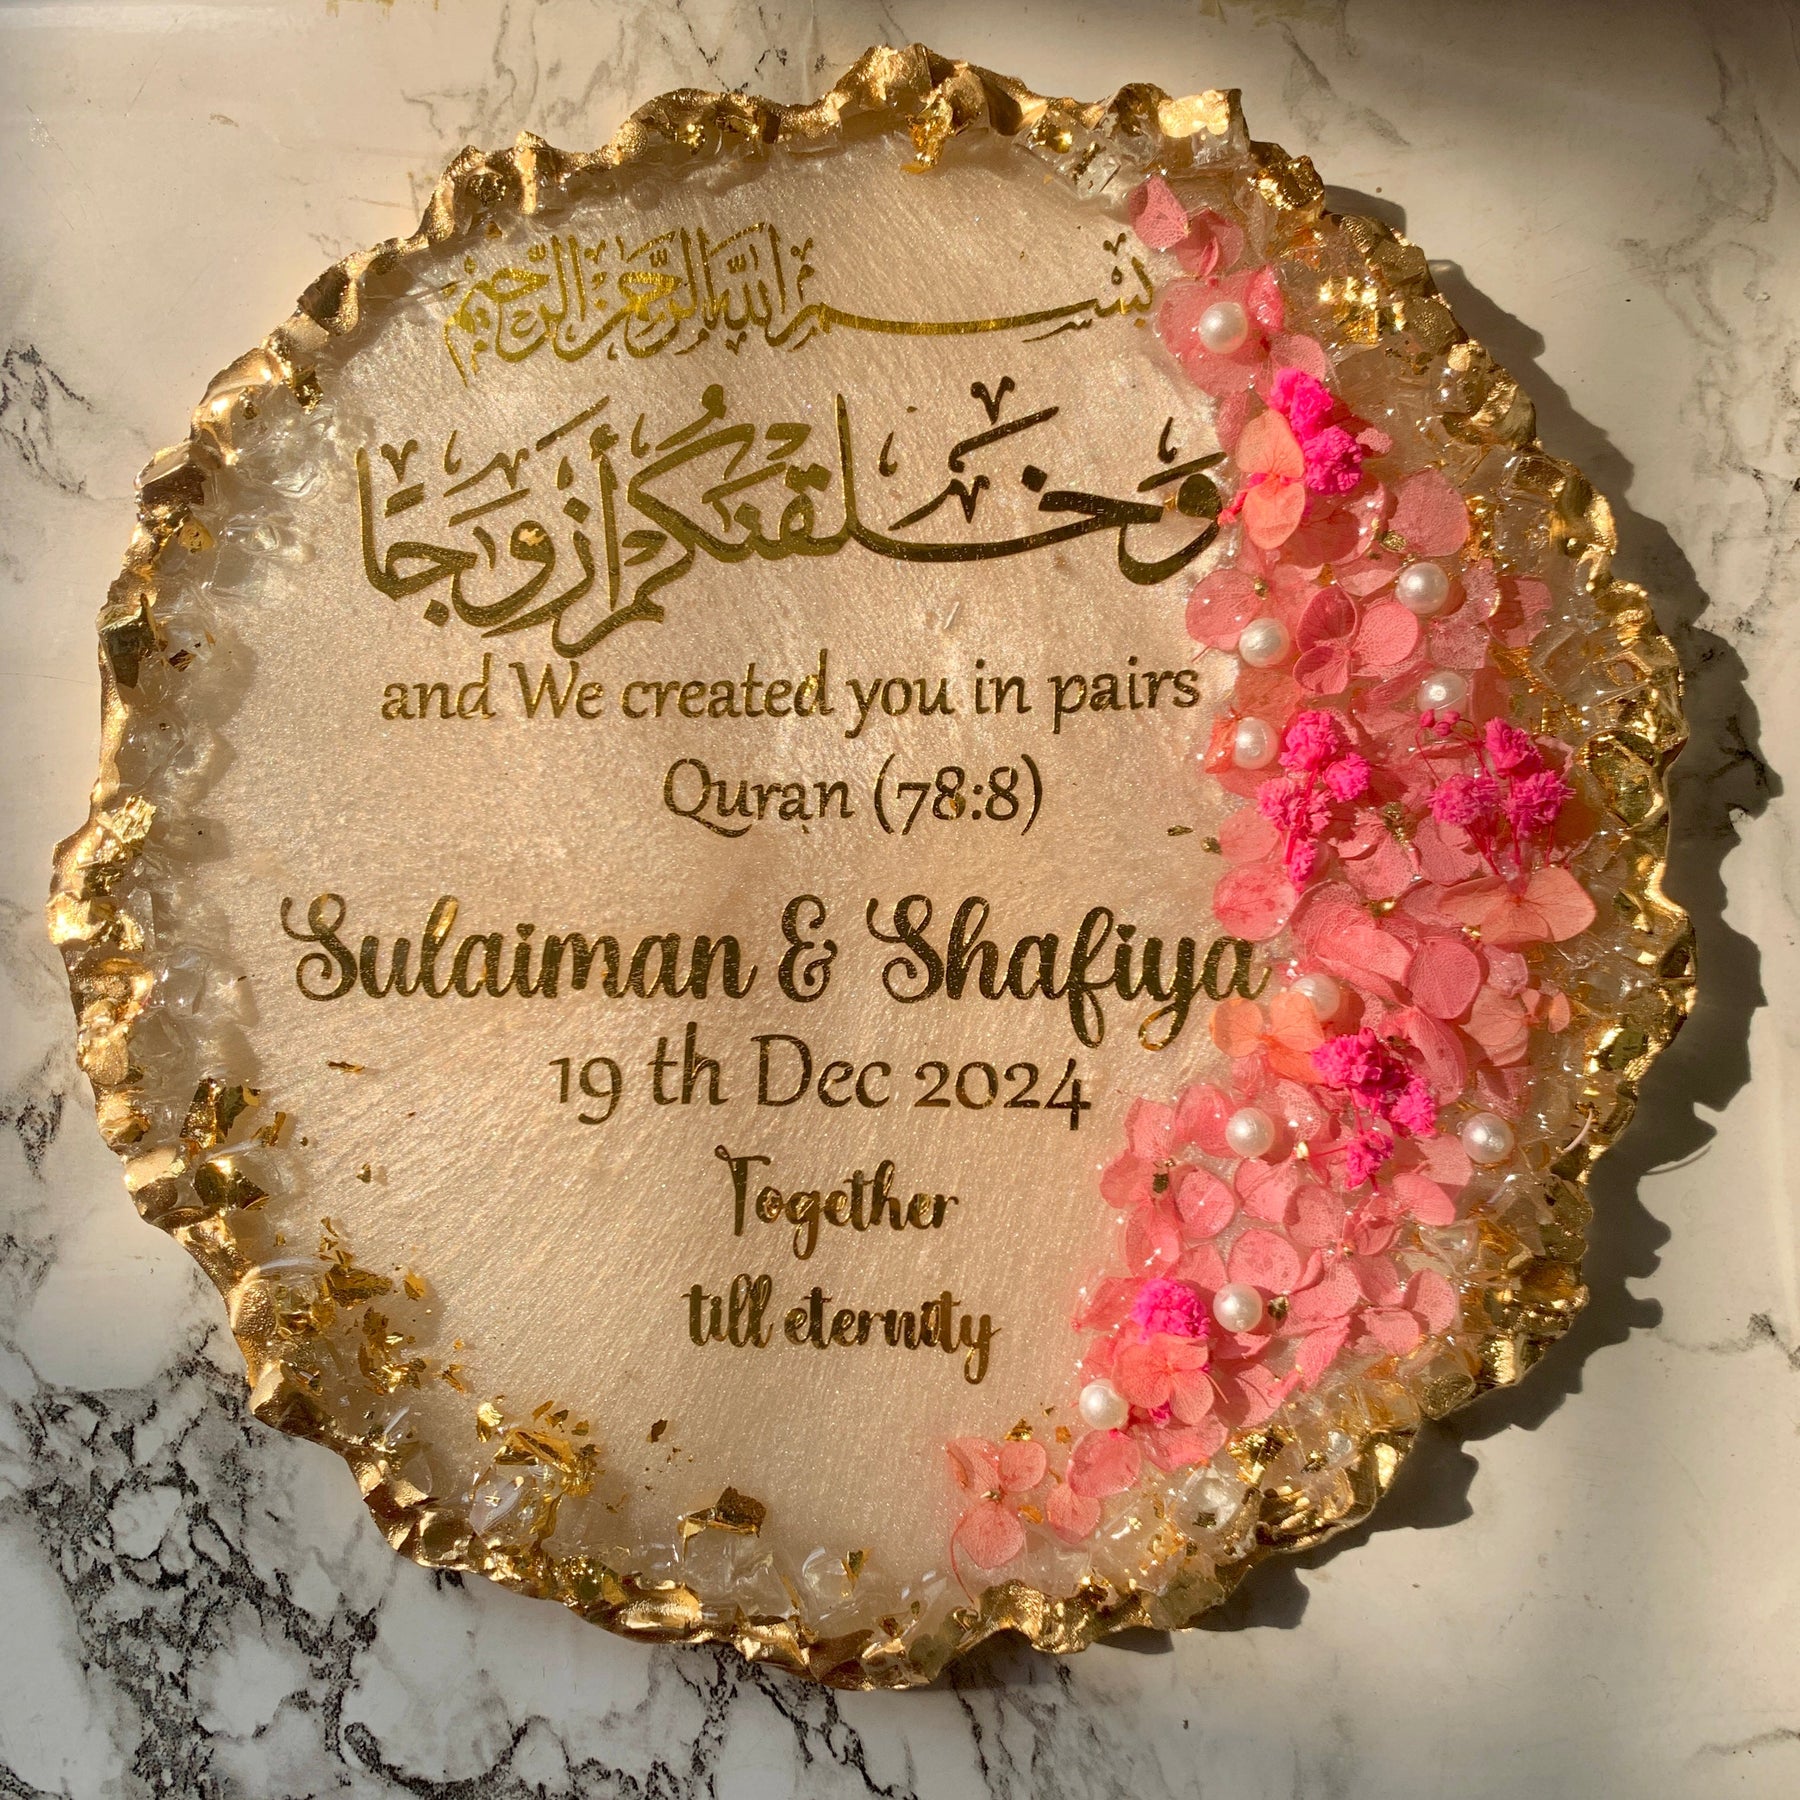 بسم الله الرحمن الرحيم
وَخَلَقْنَٰكُمْ أَزْوَٰجًا
and We created you in pairs
Quran (78:8)
Sulaiman & Shafiya
19 th Dec 2024
Together
till eternity